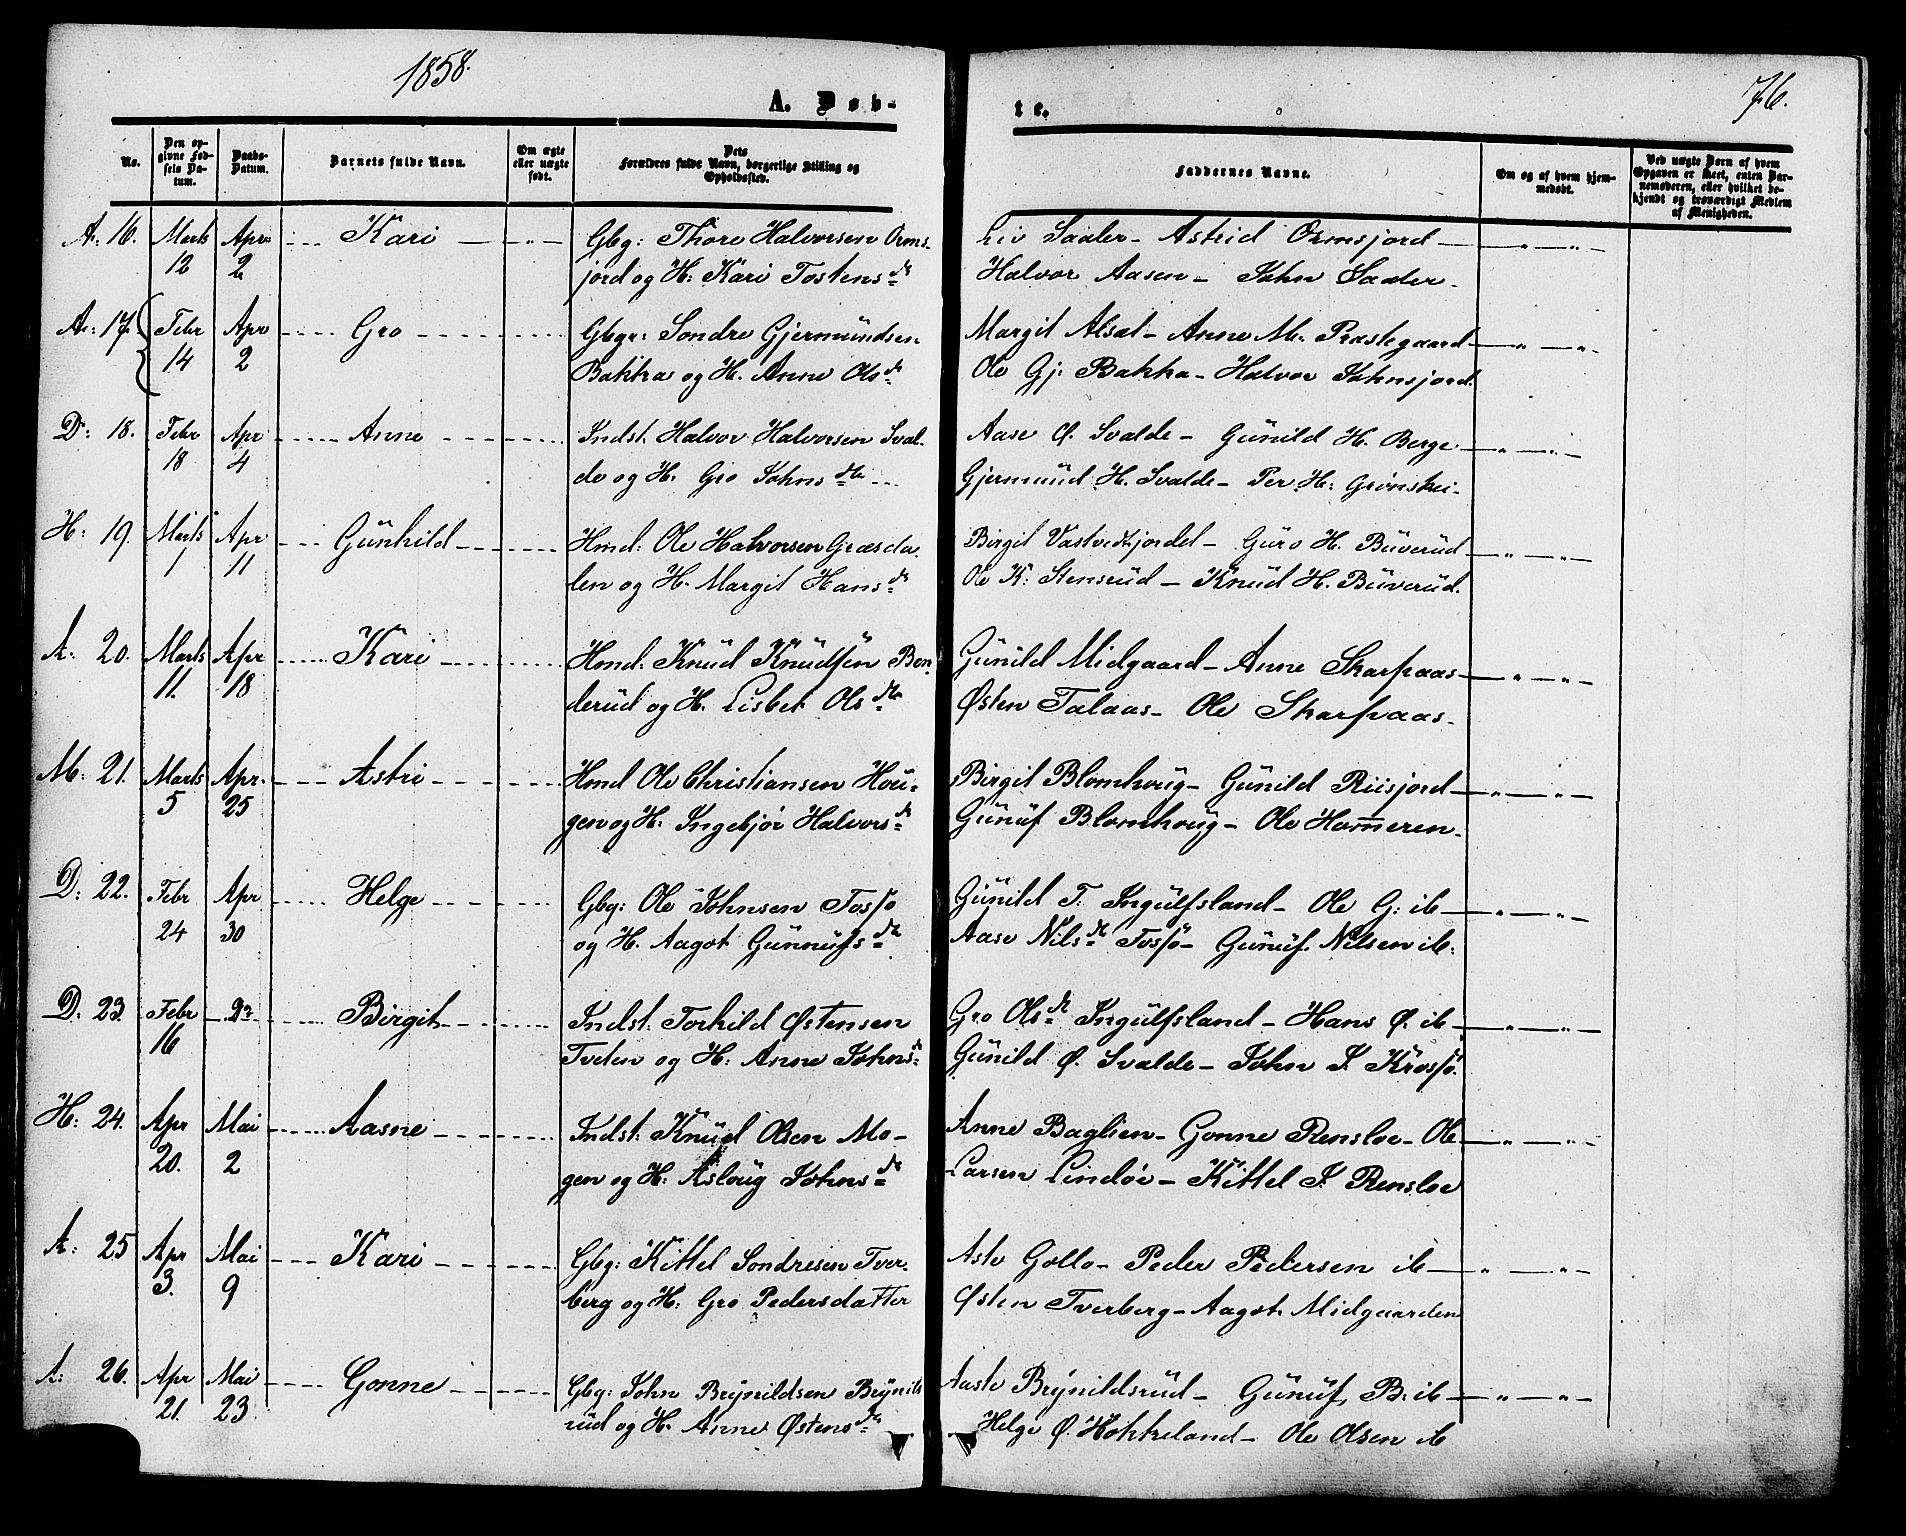 1858.
A. Døb-
te.
76.
No.
Den op-
givne Fød-
sels Da-
tum.
Daabs-
Datum.
Barnets fulde Navn.
Om ægte
eller uægte
født.
Dets
Forældres fulde Navn, borgerlige Stilling og
Opholdssted.
Faddernes Navne.
Om og af hvem hjem-
medøbt.
Ved uægte Børn af hvem
Opgaven er skeet, enten Bar-
nemoderen, eller hvilket be-
kjendt og troværdigt Medlem
af Menigheden.
A: 16. Marts Apr Kari Gbg: Thore Halvorsen Orms- Liv Saaler - Astrid Ormsjord
12 2 jord og H: Kari Tostensdr Halvor Aasen - John Saaler.
A: 17. Febr Apr Gro Gbgr: Sondre Gjermundsen Margit Alsat - Anne M. Præstegaard
14 2 Bakka og H. Anne Olsdr Ole Gj: Bakka - Halvor Johnsjord.
D: 18. Febr Apr Anne Indst. Halvor Halvorsen Sval- Aase Ø. Svalde - Gunild H. Berge
18 4 de og H. Gro Johnsdtr Gjermund H. Svalde - Per H:
H: 19. Marts Apr Gunhild Hmd: Ole Halvorsen Græsda- Birgit Vastvedtjordd - Guro H. Buverud
1 11 len og H. Margit Hansdr Ole K: Stensrud - Knud H. Buverud.
A. 20. Marts Apr Kari Hmd: Knud Knudsen Bon- Gunild Midgaard - Anne Skarpaas
11. 18 derud og H. Lisbet Olsdtr Østen Talaas - Ole Skarpaas.
M: 21. Marts Apr. Astri Hmd Ole Christiansen Hou- Birgit Blomhoug - Gunild Riisjord
5 25 gen og H: Ingebjør Halvorsdr Gunuf Blomhoug - Ole Hommeren.
D: 22. Febr Apr Helge Gbg: Ole Johnsen Fossø Gunild T. Ingulfsland - Ole G: ib
24 30 og H. Aagot Gunnufsdtr Aase Nilsdtr Fossø - Gunuf Nilsen ib.
D: 23. Febr Birgit Indst: Torkild Østensen Gro Olsdtr Ingulfsland - Hans Ø. ib
16 Tveten og H: Anne Johnsdr Gunild Ø. Svalde - John J. Krossø.
H: 24. Apr Mai Aasne Indst: Knud Olsen Mo- Anne Baglien - Gonne Rensloe - Ole
20. 2 gen og H: Asloug Johnsdr Larsen Lindöe - Kittel J. Rensloe
A: 25 Apr Mai Kari Gbg: Kittel Sondresen Tver- Aste Gollo - Peder Pedersen ib
3. 9 berg og H: Gro Pedersdatter Østen Tverberg - Aagot Midgaarden
A: 26. Apr Mai Gonne Gbg: John Brynildsen Brynils- Aaste Brynildsrud - Gunuf B: ib
21. 23 rud og H. Anne Østensdtr Helge Ø. Hokkeland - Ole Olsen ib